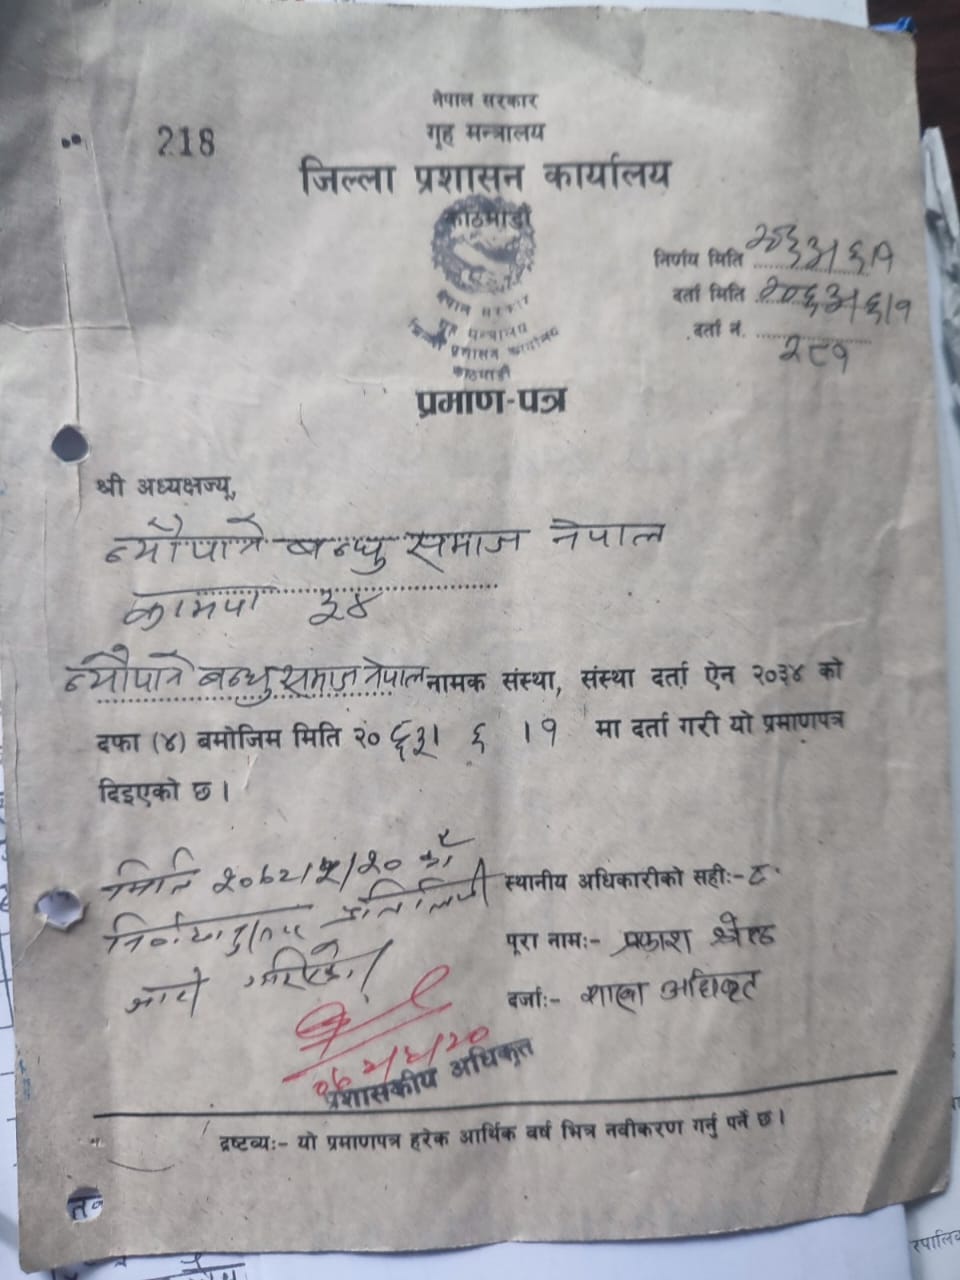 नेपाल सरकार
गृह मन्त्रालय
218
जिल्ला प्रशासन कार्यालय
काठमाडौं
नेपाल सरकार
गृह मन्त्रालय
जिल्ला प्रशासन कार्यालय
काठमाडौं
निर्णय मिति २०६३।६।१
दर्ता मिति २०६३।६।१
दर्ता नं. २८१
प्रमाण-पत्र
श्री अध्यक्षज्यू,
न्यौपाने बन्धु समाज नेपाल
कामपा ३४
न्यौपाने बन्धु समाज नेपाल नामक संस्था, संस्था दर्ता ऐन २०३४ को
दफा (४) बमोजिम मिति २० ६३। ६ ।१ मा दर्ता गरी यो प्रमाणपत्र
दिइएको छ ।
मिति २०७२/५/२० को
निर्णयानुसार प्रतिलिपी
जारी गरिएको ।
स्थानीय अधिकारीको सही:-
पूरा नाम:- प्रकाश श्रेष्ठ
दर्जा:- शाखा अधिकृत
प्रशासकीय अधिकृत
द्रष्टव्य:- यो प्रमाणपत्र हरेक आर्थिक वर्ष भित्र नवीकरण गर्नु पर्ने छ ।